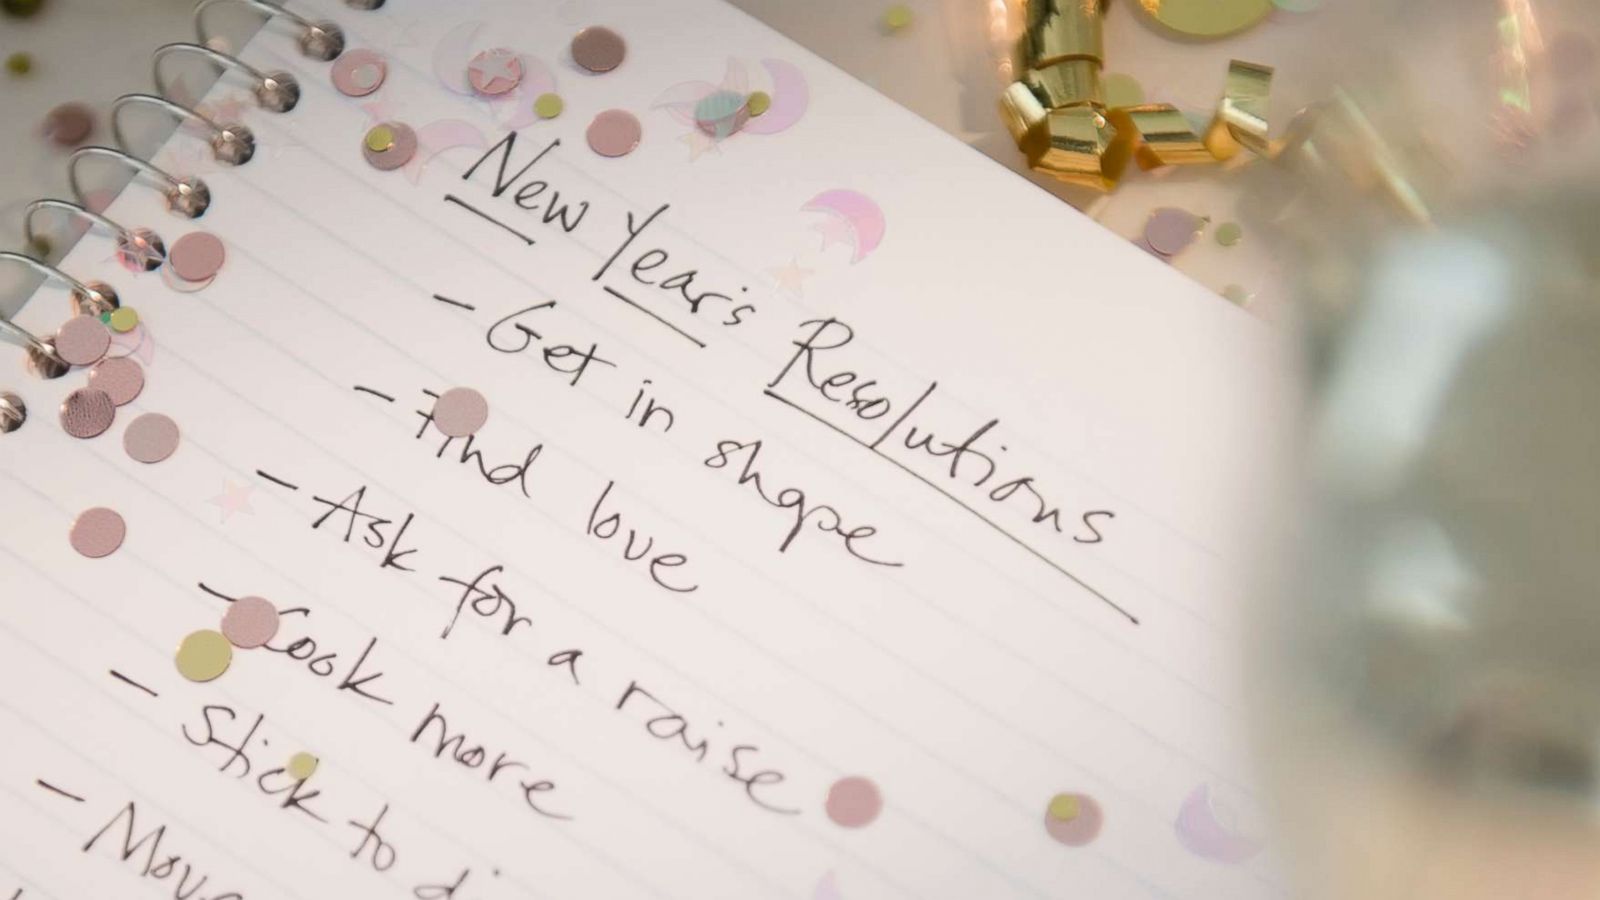 New Year's Resolutions
- Get in shape
- Find love
- Ask for a raise
- Cook more
- Stick to
-